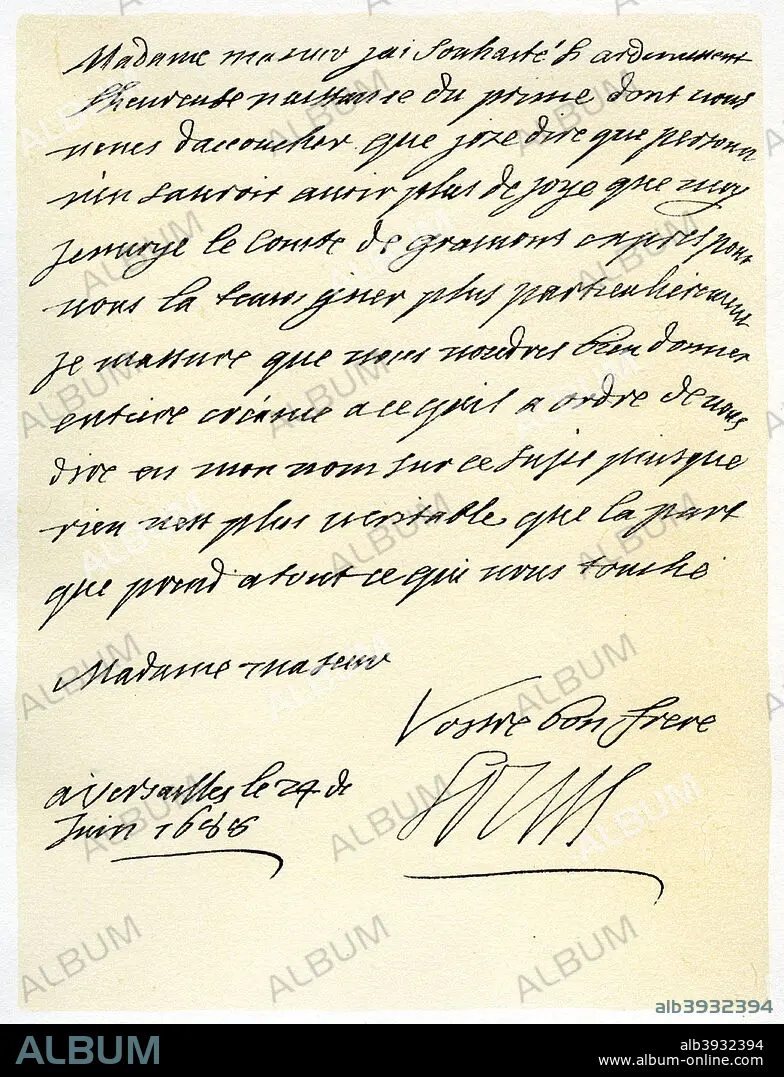 Madame ma seur jai souhaité si ardemment
lheureuse naissance du prince dont vous
venes daccoucher que joze dire que personne
nen sauroit avoir plus de joye que moy
jenvoye le Comte de gramont expres pour
vous la tesmoigner plus particulierement
je massure que vous voudres bien donner
entiere creance a ce quil a ordre de vous
dire en mon nom sur ce sujet puisque
rien nest plus veritable que la part
que prend a tout ce qui vous touche
Madame ma seur
Vostre bon frere
Louis
a Versailles le 24 de
Juin 1688
ALBUM
alb3932394
ALBUM
alb3932394
www.album-online.com